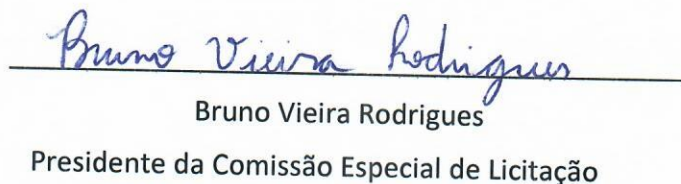 Bruno Vieira Rodrigues
Bruno Vieira Rodrigues
Presidente da Comissão Especial de Licitação